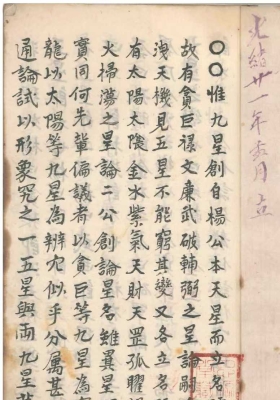 光緒廿一年月立
〇〇惟九星創自楊公本天星而立名
故有貪巨祿文廉武破輔弼之星論嗣
洩天機見五星不能窮其變又各立名
有太陽太陰金水紫氣天財天罡孤曜
火掃蕩之星論二公創論星名雖異星
實同何先輩偏議者以貪巨等九星為
龍以太陽等九星為辨穴似乎分屬甚
通論試以形象究之一五星與両九星